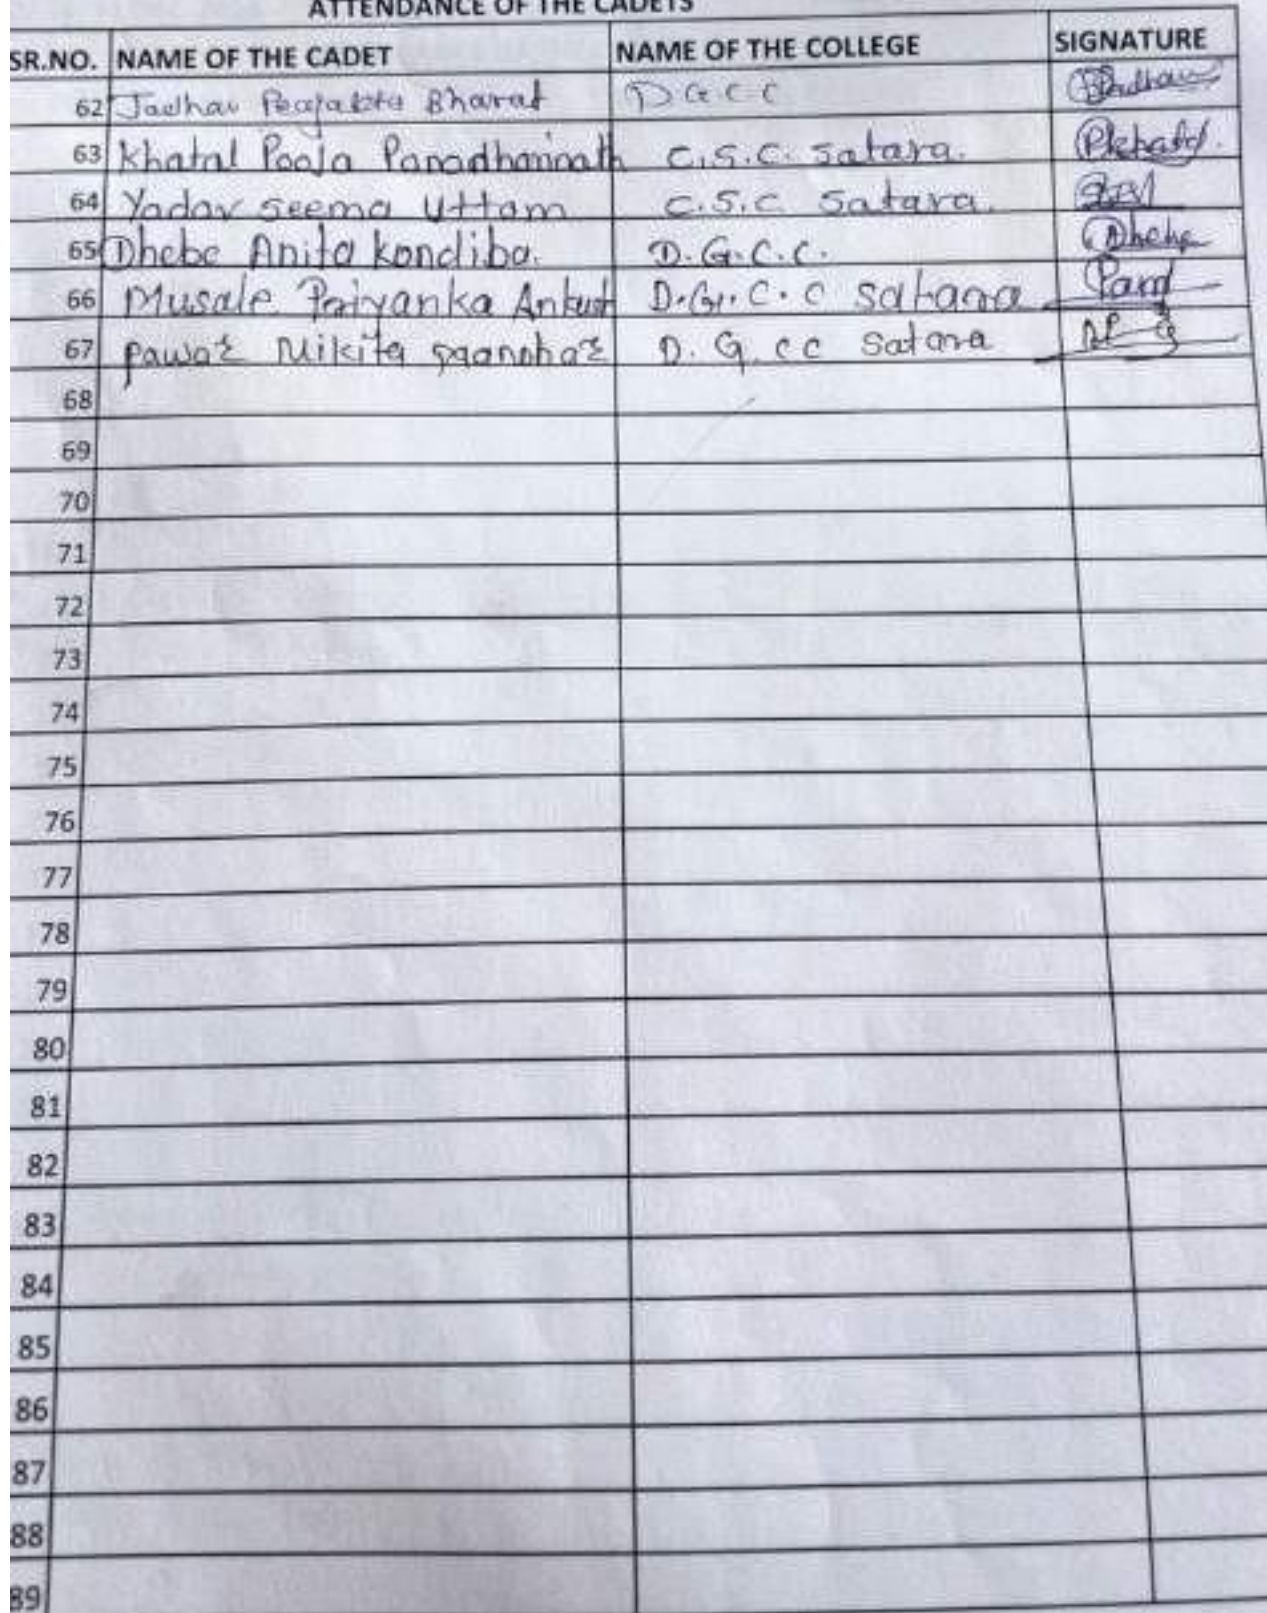 ATTENDANCE OF THE CADETS
SR.NO. NAME OF THE CADET NAME OF THE COLLEGE SIGNATURE
62 Jadhav Bharat D G C C
63 Khatal Pooja C.S.C. Satara.
64 Yadav Seema Uttam C.S.C Satara.
65 Dhebe Anita Kondiba. D.G.C.C. Dhebe
66 Musale Priyanka Ankush D.G.C.C Satara
67 Pawar Nikita D.G.CC Satara
68
69
70
71
72
73
74
75
76
77
78
79
80
81
82
83
84
85
86
87
88
89